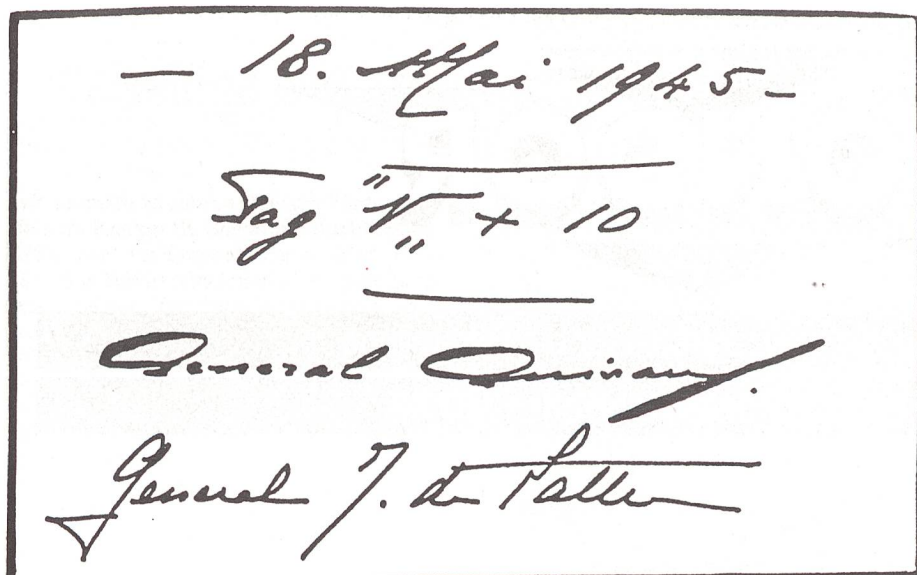 — 18. Mai 1945 —
Tag "V„ + 10
General Guisan.
General J. de Lattre